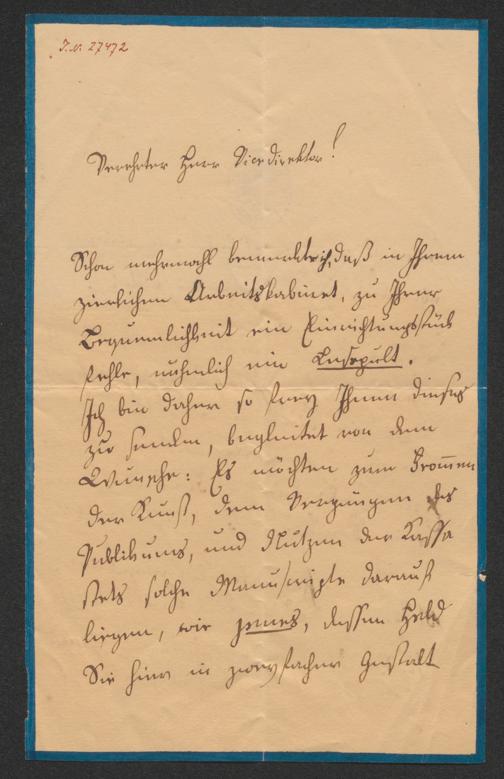 I.N. 27472
Verehrter Herr Vicedirektor!
Schon mehrmahl bemerkte ich, daß in Ihrem
zierlichen Arbeitskabinet, zu Ihrer
Bequemlichkeit ein Einrichtungsstück
fehle, nähmlich ein Lesepult.
Ich bin daher so frey Ihnen dieses
zu senden, begleitet von dem
Wunsche: Es möchten zum Frommen
der Kunst, dem Vergnügen des
Publikums, und Nutzen der Kassa
stets solche Manuscripte darauf
liegen, wie jenes, dessen Held
Sie hier in zweyfacher Gestalt